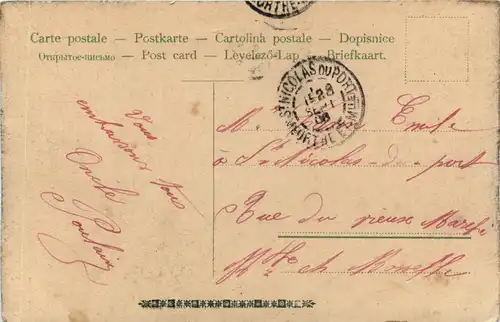 Carte postale – Postkarte – Cartolina postale – Dopisnice
Открытое-письмо – Post card – Lèvelezö-Lap – Briefkaart.
ST NICOLAS DU PORT
28
08
MEURTHE ET M
Vous
embrasse tous
M. Emile
à St Nicolas-du-port
Rue du vieux Marché
Mthe et Moselle